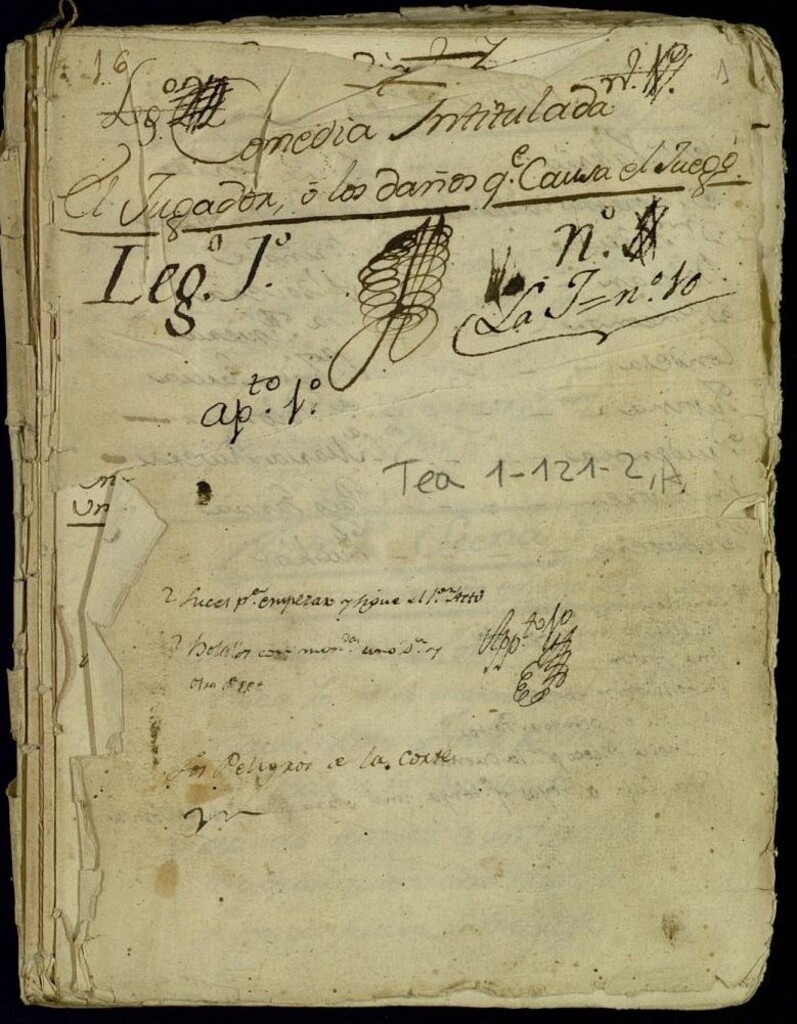 16
1
nº. 1º.
Comedia Intitulada
El Jugador, ó los daños q.e Causa el Juego.
Leg.º J.º
nº.
La J = nº. 10
ap.to 1.º
Tea 1-121-2, A
2 Luces p.a empezar y sigue el 1.er Acto
2 Bolsillos con mon.das uno D.n y
otro
App.to 1º
Los Peligros de la Corte